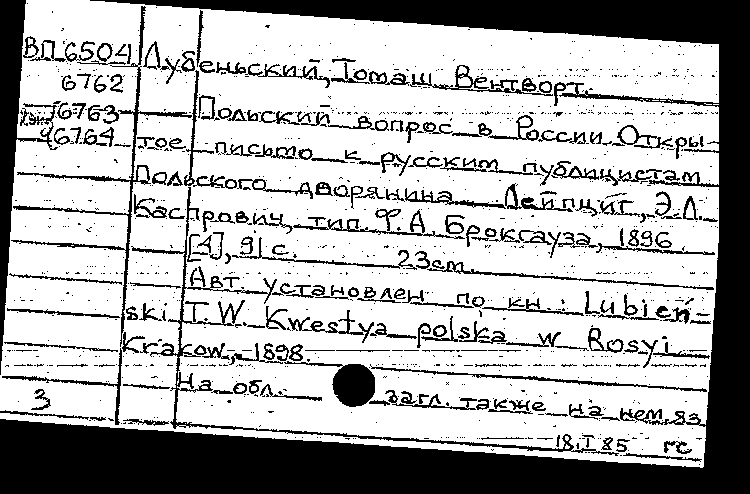 ВП 6504 Лубеньский, Томаш Вентворт.
6762
6763 Польский вопрос в России. Откры-
6764 тое письмо к русским публицистам
Польского дворянина. Лейпциг, Э.Л.
Каспрович, тип. Ф.А. Брокгауза, 1896.
[4], 91 с. 23см.
Авт. установлен по кн.: Lubień-
ski T.W. Kwestya polska w Rosyi.
Krakow, 1898.
На обл. загл. также на нем. яз.
3
18.I 85 гс